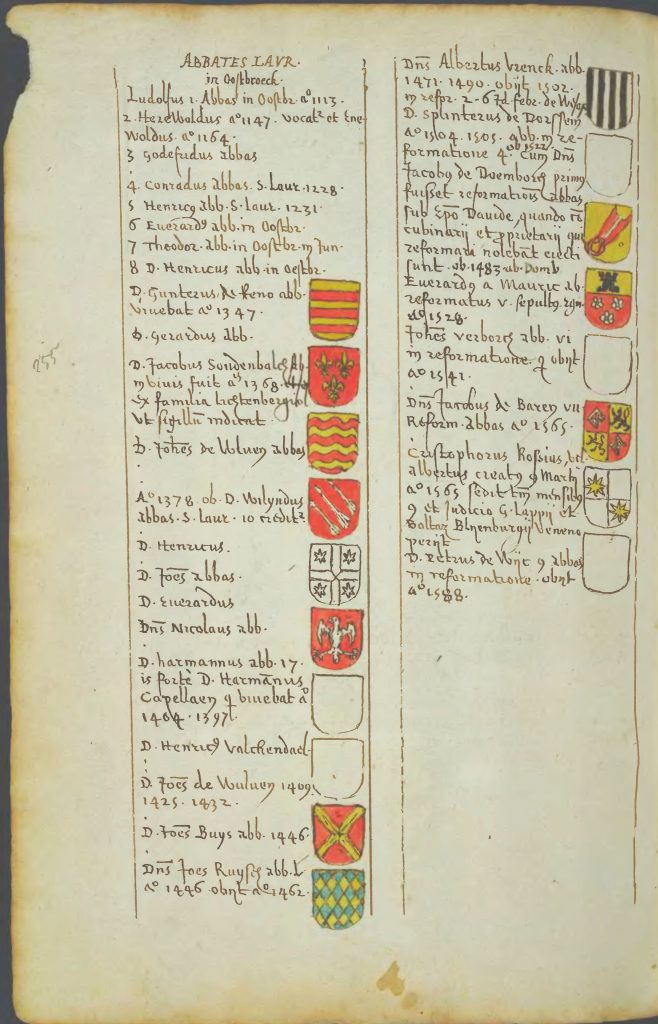 ABBATES LAVR.
in Oostbroeck.
Ludolfus 1. Abbas in Oostbr. aº 1113.
2. HereWoldus aº 1147. vocatr et Ene-
Woldus. aº 1164.
3 Godefridus abbas
4. Conradus abbas. S. Laur. 1228.
5 Henricq abb. S. Laur. 1231.
6 Everardq abb. in Oostbr.
7 Theodor. abb. in Oostbr. m Jun.
8 D. Henricus abb. in Oestbr.
D. Gunterus de Reno abb.
vivebat aº 1347.
D. Gerardus abb.
D. Jacobus
in vivis fuit aº 1368.
ex familia Lichtenberg
vt sigillu indicat.
D. Johes de Wluen abbas
Aº 1378. ob. D. Wilyndus
abbas. S. Laur. 10 credit.
D. Henricus.
D. Joes abbas.
D. Everardus
Dns Nicolaus abb.
D. harmannus abb. 17.
is forte D. Harmanus
Capellaen q vivebat aº
1404. 1397.
D. Henricq Valckendael.
D. Joes de Wuluen 1409.
1425. 1432.
D. Joes Buys abb. 1446.
Dns Joes Ruysch abb. L
aº 1446 obijt aº 1462.
Dns Albertus Vrenck. abb.
1471. 1490. obijt 1502.
in refor. 2. 6 Id. febr. de
D. Splinterus de Dorssein
aº 1504. 1505. abb. in re-
ob 1522.
formatione 4. Cum Dns
Jacobq de Duemborch primq
fuisset reformationis abbas
sub Epo Dauide, quando
cubinarij et pprietarij qui
reformari nolebat eiecti
sunt. ob. 1483 ab. Domb
Everardq a Mauric ab.
reformatus v. sepultq
aº 1528.
Johes verborch abb. vi
in reformatione. q obijt
aº 1541.
Dns Jacobus de Baren vii
Reform. abbas aº 1565.
Cristophorus Rossius, vel
albertus creatq 9 Martij
aº 1565 sedit tm mensibq
9 et Judicio G. Lappij et
Baltaz Blyenburgij Veneno
perijt
D. Petrus de Wijc 9 abbas
in reformatione. obijt
aº 1588.
255